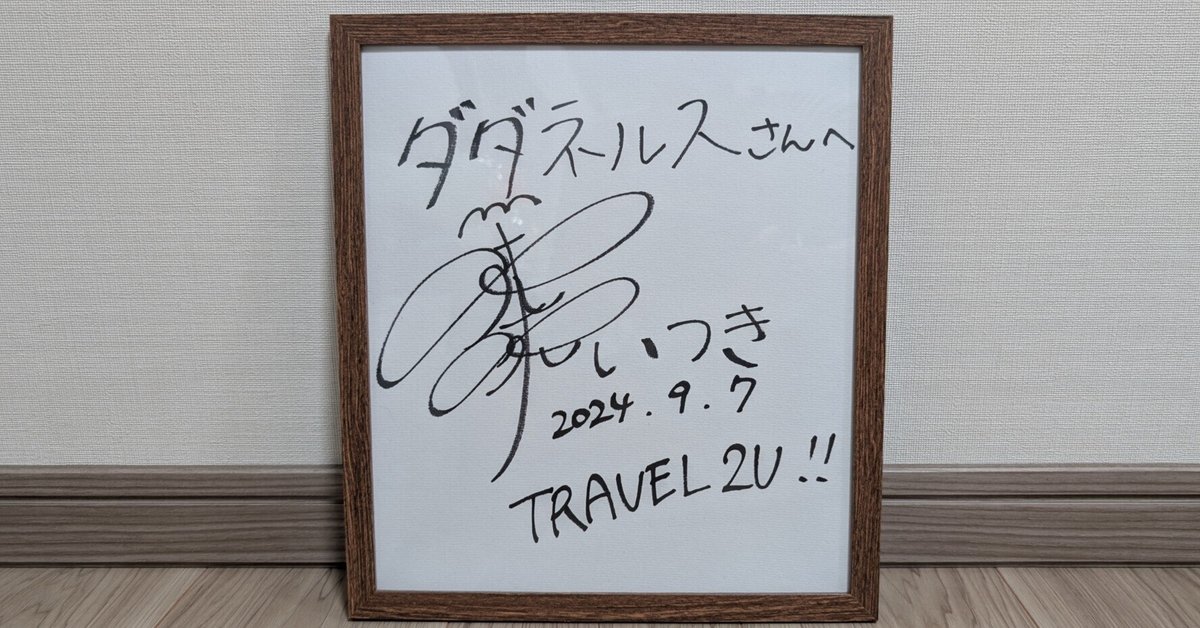 ダダネルスさんへ
いつき
2024.9.7
TRAVEL 2U!!